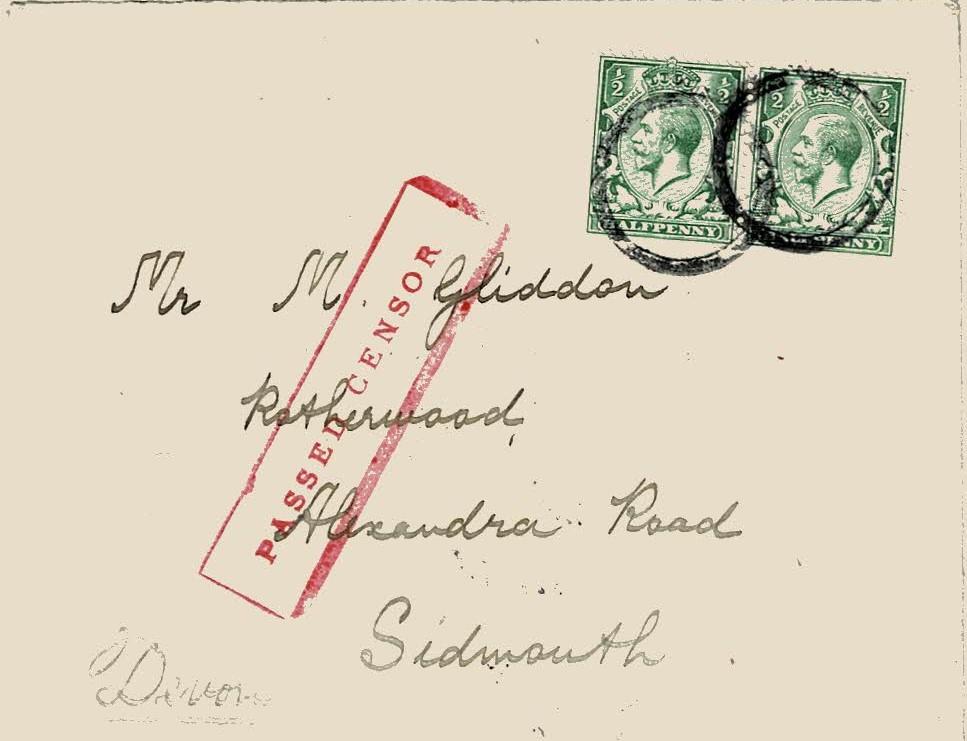 ½ ½
POSTAGE REVENUE
HALFPENNY
½ ½
POSTAGE REVENUE
HALFPENNY
PASSED CENSOR
Mr M. Gliddon
Rotherwood,
Alexandra Road
Sidmouth.
Devon